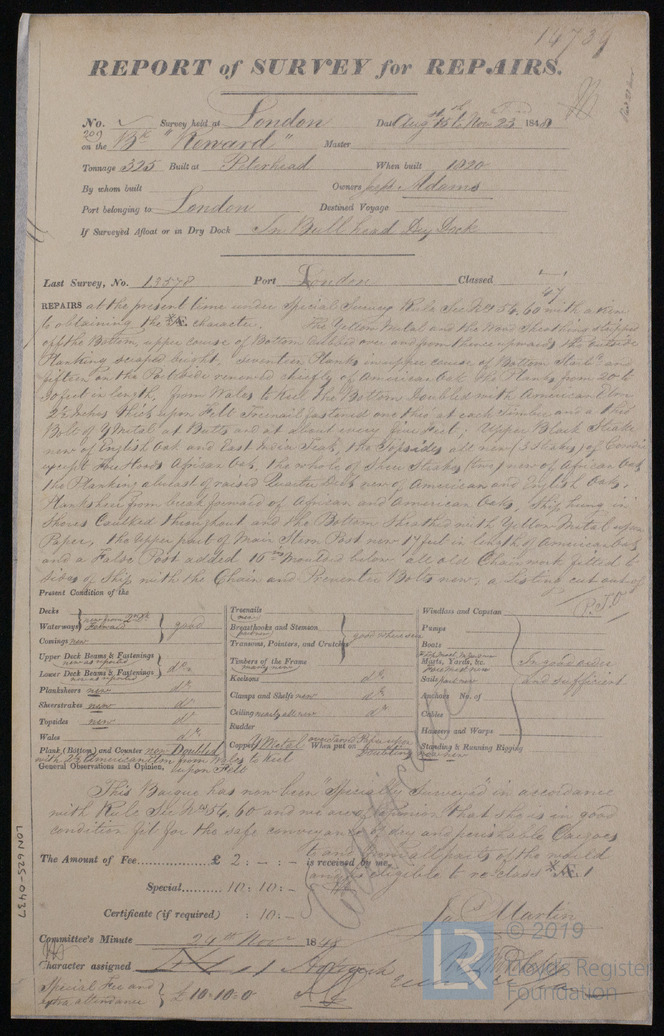 14739
REPORT of SURVEY for REPAIRS.
No. Survey held at London Date Aug 15th to Nov 23 1848
209
on the Bk "Reward" Master
Tonnage 325 Built at Peterhead When built 1820
By whom built Owners Adams
Port belonging to London Destined Voyage
If Surveyed Afloat or in Dry Dock In Bull head Dry Dock
Last Survey, No. 13578 Port London Classed
47
REPAIRS at the present time under Special Survey Rule Sec Nos 54, 60 with a view
to obtaining the *Æ character. The Yellow Metal and the Wood Sheathing stripped
off the Bottom, upper course of Bottom and from thence upwards the outside
Planking scraped bright, Seventeen Planks in upper course of Bottom Starbd and
fifteen on the Port side renewed chiefly of American Oak the Planks from 20 to
30 feet in length, from Wales to Keel the Bottom Doubled with American Elm
2½ Inches thick upon Felt Treenail fastened one thro at each timber and a thro
Bolt of Y Metal at Butts and at about every five feet; Upper Black Strake
new of English Oak and East India Teak, the Topsides all new (3 Strakes) of
except Fore Hoods African Oak, the whole of Sheer Strakes (two) new of African Oak
the Planking abreast of raised Quarter Deck new of American and English Oak,
Planksheer from break forward of African and American Oak, Ship hung in
Shores Caulked throughout and the Bottom Sheathed with Yellow Metal upon
Paper, the upper part of Main Stern Post new 17 feet in length of American Oak
and a False Post added 16 ins Moulded below all old Chain work fitted to
sides of Ship with the Chain and Preventer Bolts new, a listing cut out of
P.T.O
Present Condition of the
Decks new from
Waterways Forward good
Comings new
Upper Deck Beams & Fastenings
new as reported do
Lower Deck Beams & Fastenings
new as reported
Planksheers new do
Sheerstrakes new do
Topsides new do
Wales do
Plank (Bottom) and Counter new Doubled
with 2½ American Elm from Wales to Keel
upon Felt
Treenails
new
Breasthooks and Stemson
part new good otherwise
Transoms, Pointers, and Crutches
Timbers of the Frame
many new
Keelsons do
Clamps and Shelfs new do
Ceiling nearly all new do
Rudder
Copper Y Metal When put on over Paper upon
Doubling
Windlass and Capstan
Pumps
Boats
Masts, Yards, &c.
Sails part new In good order
and sufficient
Anchors No. of
Cables
Hawsers and Warps
Standing & Running Rigging
new
General Observations and Opinion,
This Barque has now been "Specially Surveyed" in accordance
with Rule Sec Nos 54, 60 and we are of opinion that she is in good
condition fit for the safe conveyance of dry and perishable Cargoes
to and from all parts of the world
and is eligible to re class *Æ 1
The Amount of Fee............ £ 2 : - : - is received by me,
Special...... 10 : 10 : -
Certificate (if required) : 10 : -
Certificate
Jas Martin
Committee's Minute 24th Novr 1848
Character assigned
Special Fee and
extra attendance } £10-10-0
LON 625-0437
LR
© 2019
Lloyd's Register
Foundation